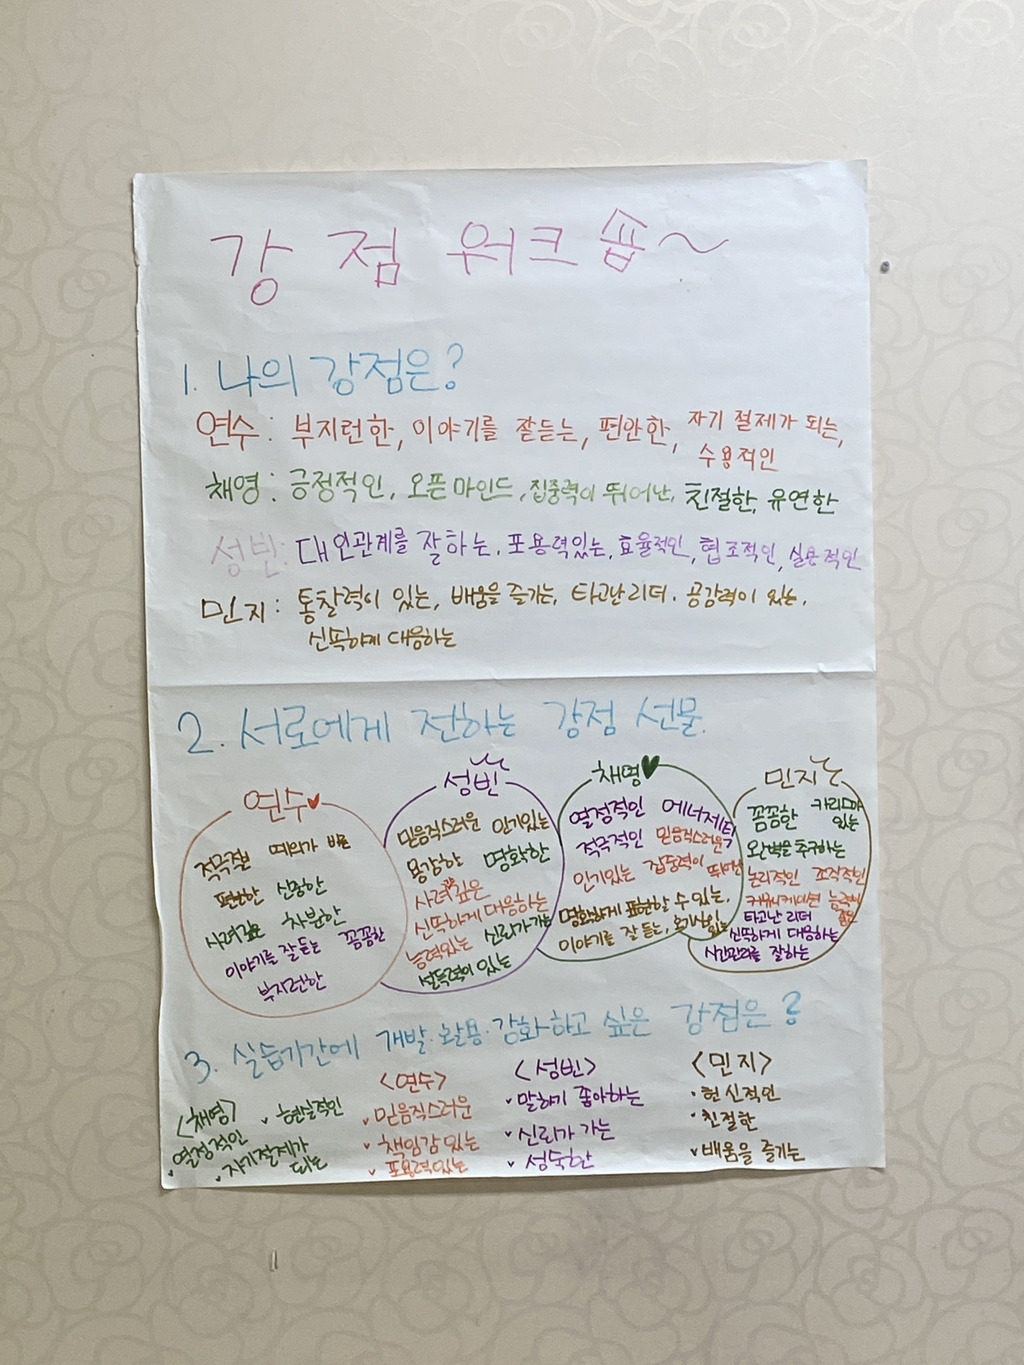 강점 워크숍~
1. 나의 강점은?
연수 : 부지런한, 이야기를 잘듣는, 편안한, 자기 절제가 되는,
수용적인
채영 : 긍정적인, 오픈마인드, 집중력이 뛰어난, 친절한, 유연한
성빈: 대인관계를 잘하는, 포용력있는, 효율적인, 협조적인, 실용적인
민지 : 통찰력이 있는, 배움을 즐기는, 타고난 리더, 공감력이 있는,
신뜩하게 대응하는
2. 서로에게 전하는 강점 선물.
연수♥
예의가 바른
편안한 신중한
사려깊은 차분한
이야기를 잘듣는 꼼꼼한
부지런한
성빈
믿음직스러운 인기있는
용감한 명확한
사려깊은
신뜩하게 대응하는
능력있는 신뢰가 가는
설득력이 있는
채영♥
열정적인 에너제틱
적극적인 믿음직스러운
인기있는 집중력이 뛰어난
명확하게 표현할 수 있는,
이야기를 잘 듣는,
민지
꼼꼼한 카리스마
있는
완벽을 추구하는
논리적인 조직적인
커뮤니케이션 능력이
타고난 리더
신뜩하게 대응하는
시간관리를 잘하는
3. 실습기간에 개발·활용·강화하고 싶은 강점은?
<채영>
열정적인
현실적인
자기절제가
되는
<연수>
믿음직스러운
책임감 있는
포용력있는
<성빈>
말하기 좋아하는
신뢰가 가는
성숙한
<민지>
헌신적인
친절한
배움을 즐기는